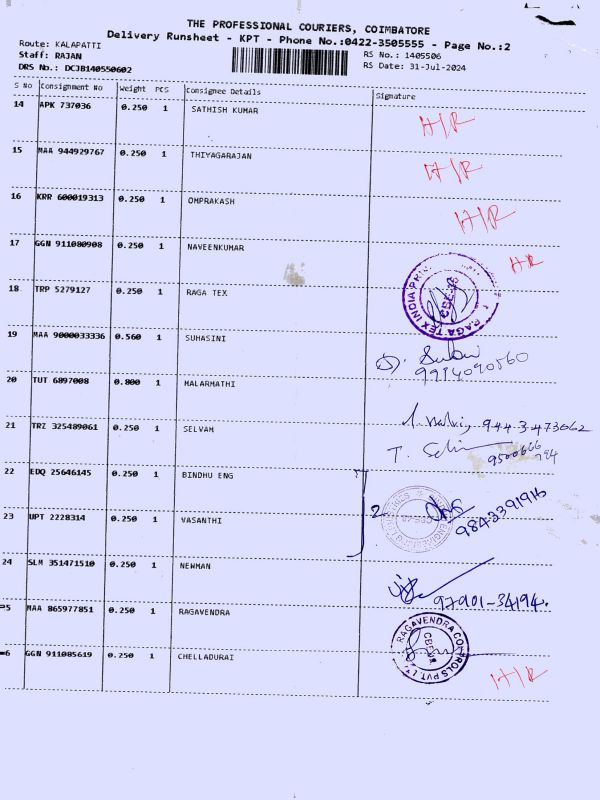 THE PROFESSIONAL COURIERS, COIMBATORE
Delivery Runsheet - KPT - Phone No.:0422-3505555 - Page No.:2
Route: KALAPATTI
Staff: RAJAN
DRS No.: DCJB140550602
RS No.: 1405506
RS Date: 31-Jul-2024
S No Consignment No Weight PCS Consignee Details Signature
14 APK 737036 0.250 1 SATHISH KUMAR H/R
15 MAA 944929767 0.250 1 THIYAGARAJAN H/R
16 KRR 600019313 0.250 1 OMPRAKASH H/R
17 GGN 911080908 0.250 1 NAVEENKUMAR H/R
18 TRP 5279127 0.250 1 RAGA TEX
RAGA TEX INDIA
19 MAA 9000033336 0.560 1 SUHASINI
20 TUT 6897008 0.800 1 MALARMATHI
21 TRZ 325489061 0.250 1 SELVAM
22 EDQ 25646145 0.250 1 BINDHU ENG
2 9843391916
23 UPT 2228314 0.250 1 VASANTHI
24 SLM 351471510 0.250 1 NEWMAN
97901-34194.
5 MAA 865977851 0.250 1 RAGAVENDRA
RAGAVENDRA CONTROLS PVT. LTD
6 GGN 911085619 0.250 1 CHELLADURAI H/R